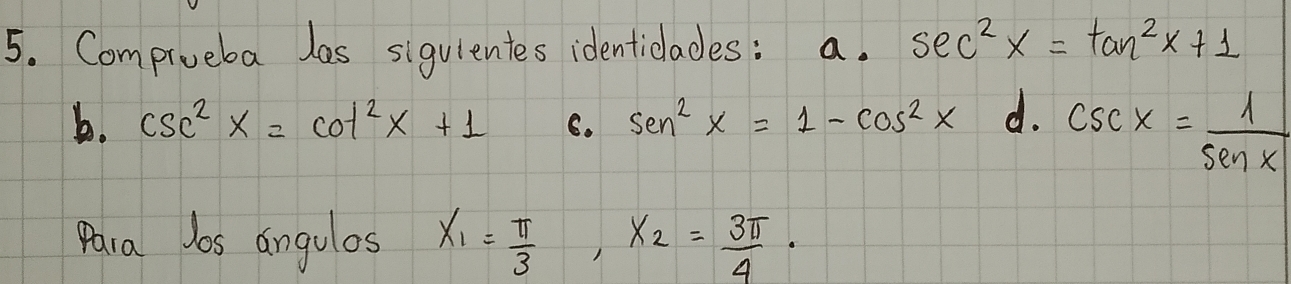 5. Comprueba las siguientes identidades: a. sec² x = tan² x + 1
b. csc² x = cot² x + 1 c. sen² x = 1 - cos² x d. csc x = 1/sen x
Para los ángulos x₁ = π/3 , x₂ = 3π/4 .